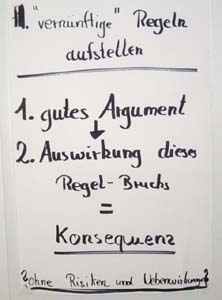 1. "vernünftige" Regeln
aufstellen
1. gutes Argument
2. Auswirkung dieses
Regel-Bruchs
=
Konsequenz
?ohne Risiken und Nebenwirkungen?